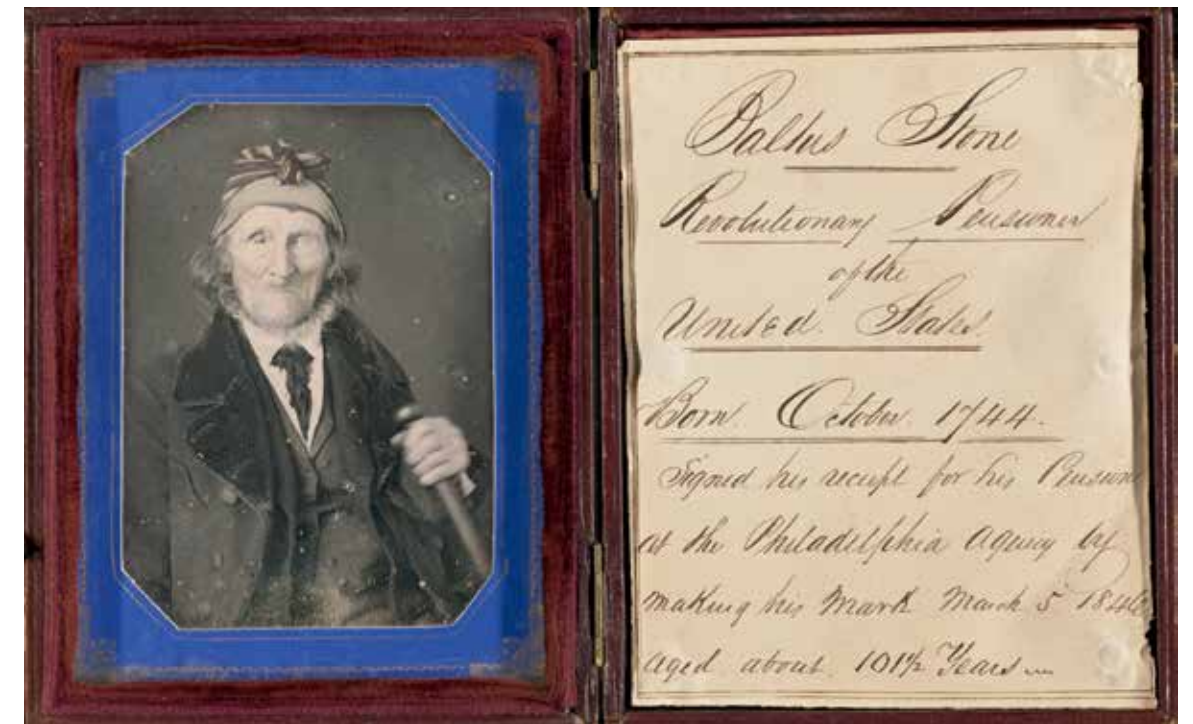 Baltus Stone
Revolutionary Pensioner
of the
United States
Born October 1744.
Signed his receipt for his Pension
at the Philadelphia Agency by
making his mark March 5 1846
aged about 101½ Years